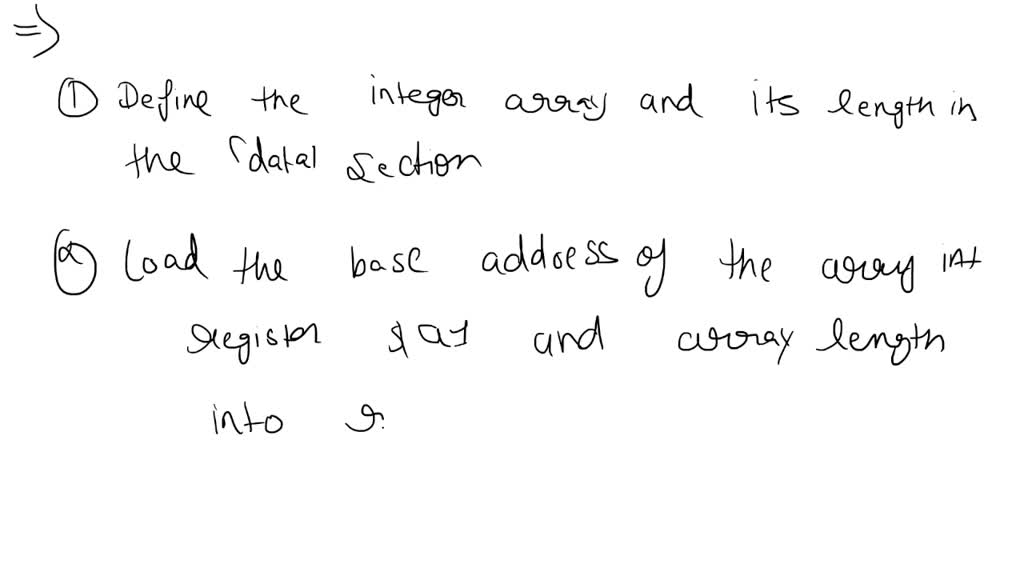 =>
① Define the integer array and its length in
the data section
② Load the base address of the array int
register $a1 and array length
into